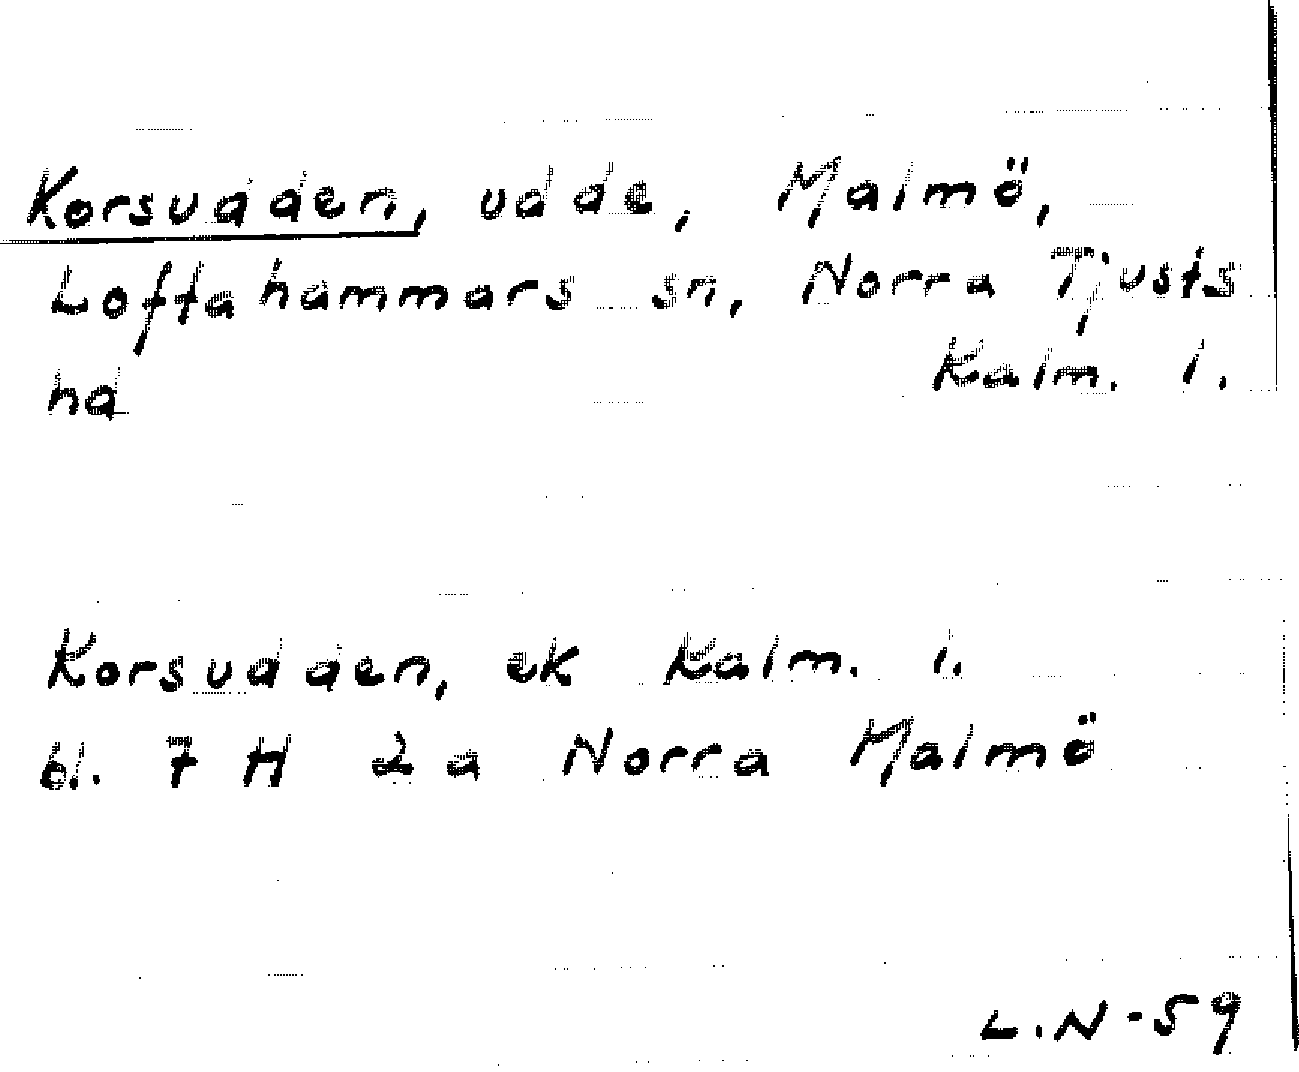 Korsudden, udde, Malmö,
Loftahammars sn, Norra Tjusts
hd Kalm. l.
Korsudden, ek Kalm. l.
bl. 7 H 2a Norra Malmö
L.N-59